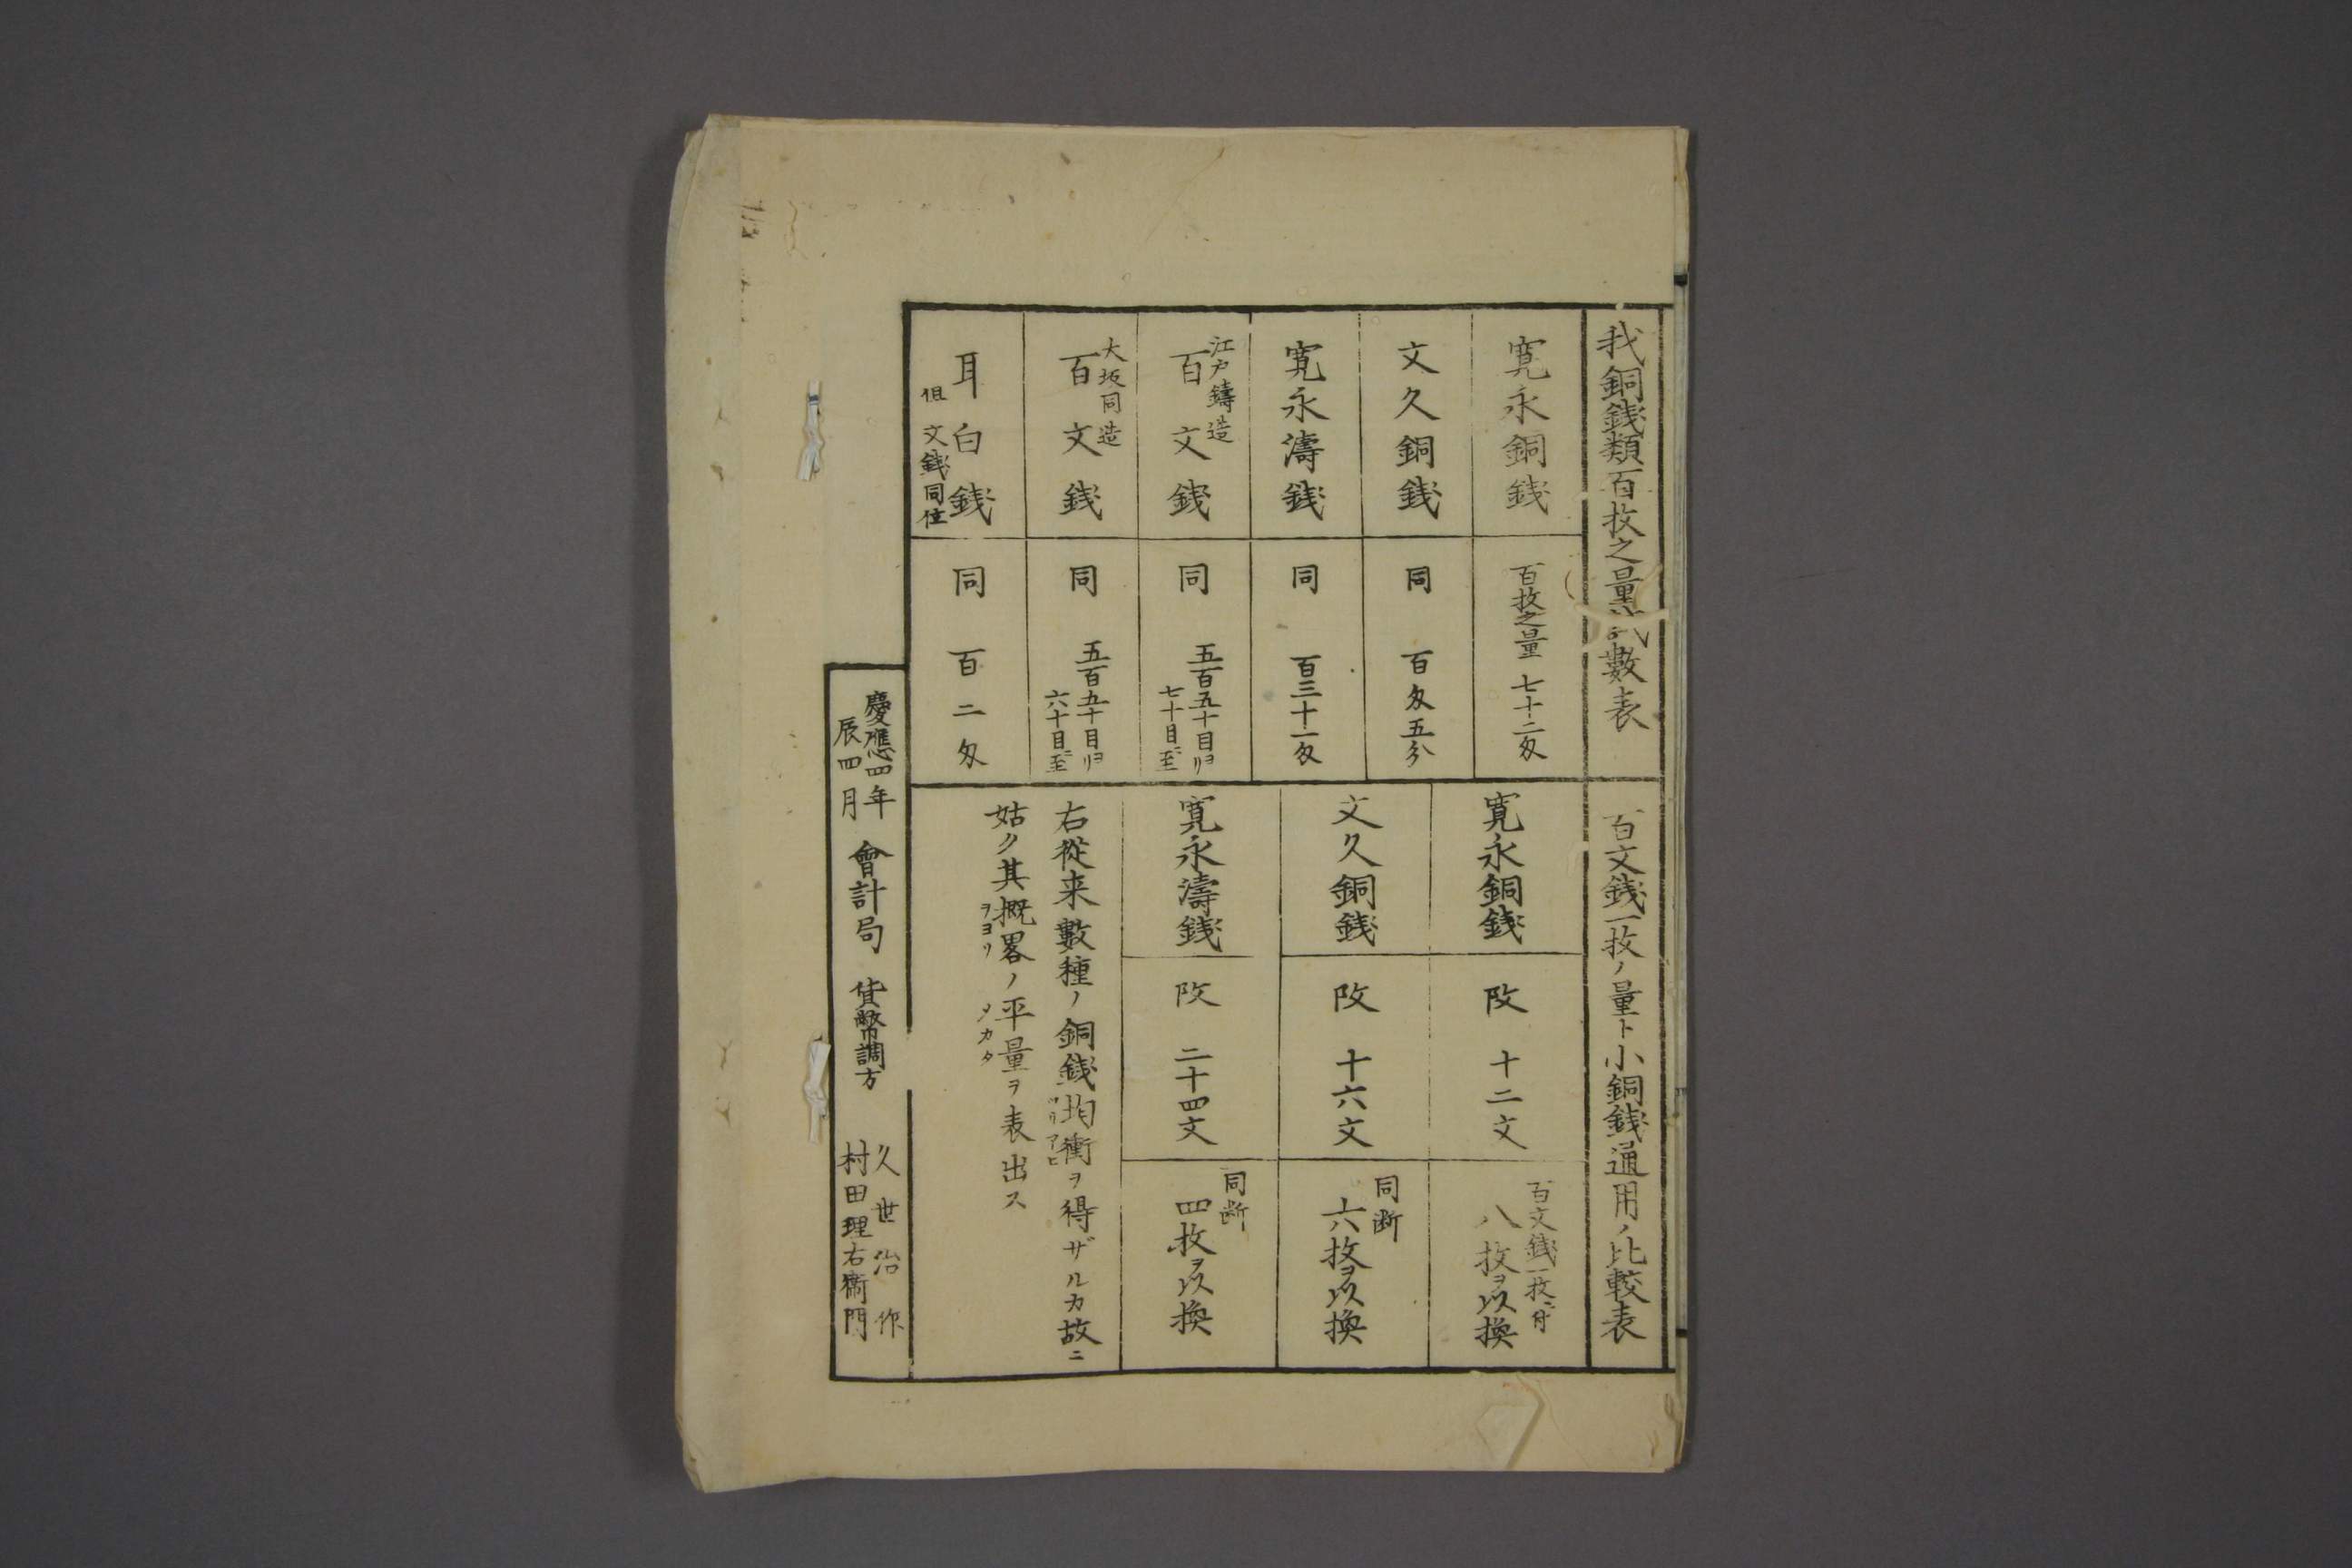 我銅銭類百枚之量 数表
寛永銅銭
百枚之量 七十二匁
文久銅銭
同 百匁五分
寛永濤銭
同 百三十一匁
江戸鋳造
百文銭
同 五百五十目ヨリ
七十目ニ至
大坂同造
百文銭
同 五百五十目ヨリ
六十目ニ至
耳白銭
但 文銭同位
同 百二匁
百文銭一枚ノ量ト小銅銭通用ノ比較表
寛永銅銭
改 十二文
百文銭一枚ニ付
八枚ヲ以換
文久銅銭
改 十六文
同断
六枚ヲ以換
寛永濤銭
改 二十四文
同断
四枚ヲ以換
右従来數種ノ銅銭均衡ヲ得ザルカ故ニ
ツリアヒ
姑ク其概畧ノ平量ヲ表出ス
ヲヨソ メカタ
慶應四年
辰四月
會計局 貨幣調方
久世治作
村田理右衛門